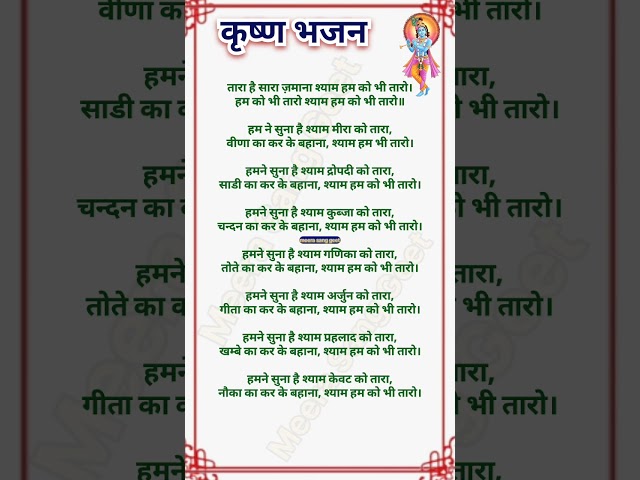 कृष्ण भजन
तारा है सारा ज़माना श्याम हम को भी तारो।
हम को भी तारो श्याम हम को भी तारो॥
हम ने सुना है श्याम मीरा को तारा,
वीणा का कर के बहाना, श्याम हम भी तारो।
हमने सुना है श्याम द्रोपदी को तारा,
साडी का कर के बहाना, श्याम हम को भी तारो।
हमने सुना है श्याम कुब्जा को तारा,
चन्दन का कर के बहाना, श्याम हम को भी तारो।
meera sang geet
हमने सुना है श्याम गणिका को तारा,
तोते का कर के बहाना, श्याम हम को भी तारो।
हमने सुना है श्याम अर्जुन को तारा,
गीता का कर के बहाना, श्याम हम को भी तारो।
हमने सुना है श्याम प्रहलाद को तारा,
खम्बे का कर के बहाना, श्याम हम को भी तारो।
हमने सुना है श्याम केवट को तारा,
नौका का कर के बहाना, श्याम हम को भी तारो।